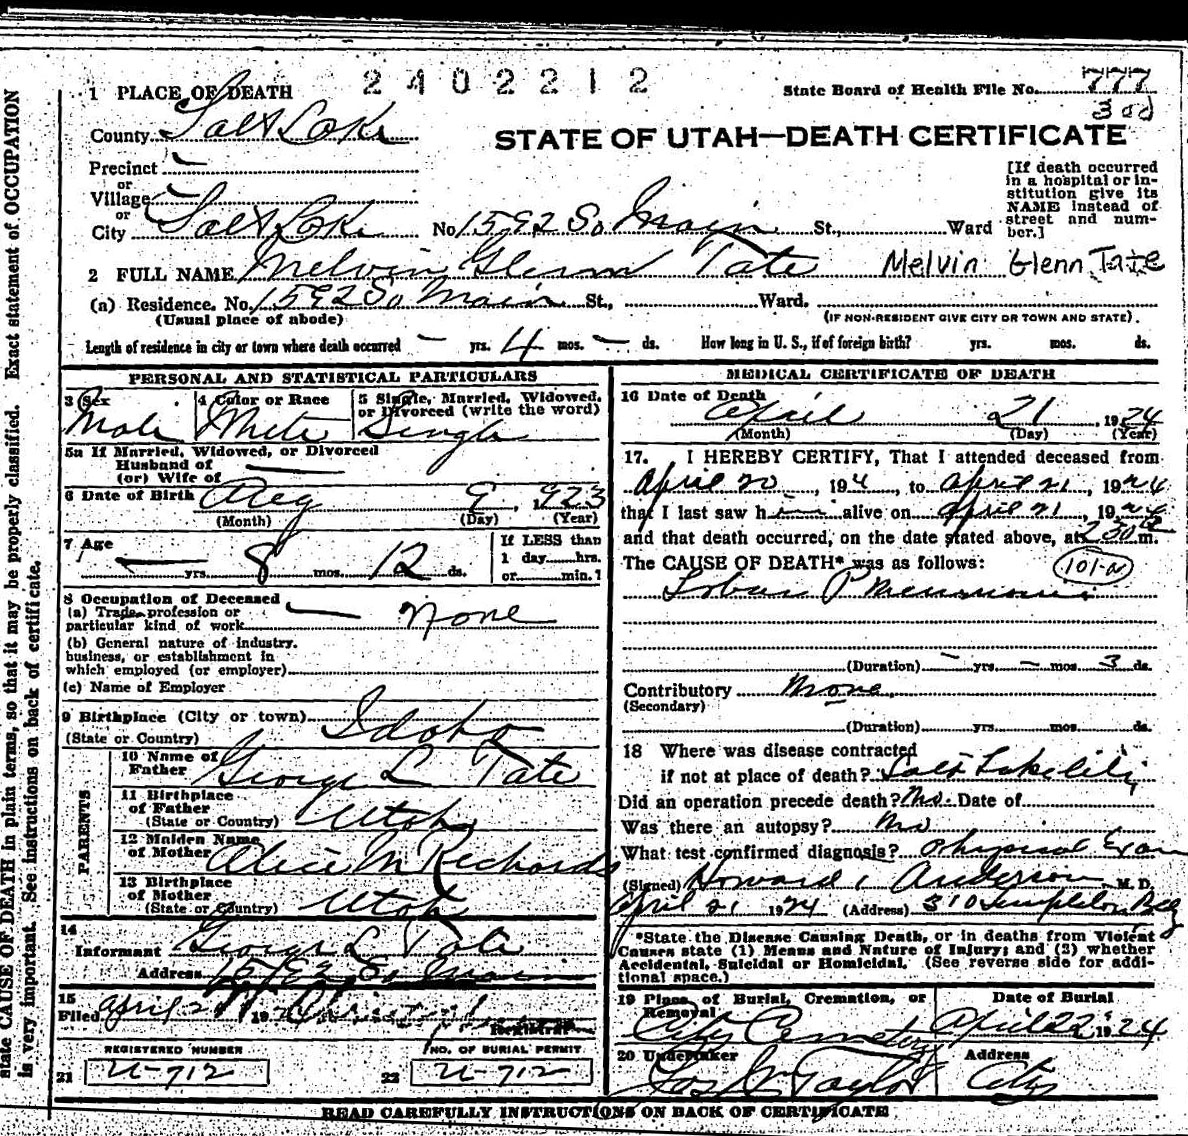 2402212
1 PLACE OF DEATH
State Board of Health File No. 777
3 od
County Salt Lake
STATE OF UTAH—DEATH CERTIFICATE
Precinct
or
Village
or
City Salt Lake No. 1592 So Main St., Ward
[If death occurred
in a hospital or in-
stitution give its
NAME instead of
street and num-
ber.]
2 FULL NAME Melvin Glenn Tate Melvin Glenn Tate
(a) Residence. No. 1592 So Main St., Ward.
(Usual place of abode) (IF NON-RESIDENT GIVE CITY OR TOWN AND STATE).
Length of residence in city or town where death occurred — yrs. 4 mos. — ds. How long in U. S., if of foreign birth? yrs. mos. ds.
PERSONAL AND STATISTICAL PARTICULARS
3 Sex 4 Color or Race 5 Single, Married, Widowed,
or Divorced (write the word)
Male White Single
5a If Married, Widowed, or Divorced
Husband of
(or) Wife of
6 Date of Birth Aug 9, 1923
(Month) (Day) (Year)
7 Age — yrs. 8 mos. 12 ds.
If LESS than
1 day hrs.
or min. ?
8 Occupation of Deceased
(a) Trade, profession or
particular kind of work — none
(b) General nature of industry,
business, or establishment in
which employed (or employer)
(c) Name of Employer
9 Birthplace (City or town)
(State or Country) Idaho
PARENTS
10 Name of
Father George L Tate
11 Birthplace
of Father
(State or Country) Utah
12 Maiden Name
of Mother Alice M Richards
13 Birthplace
of Mother
(State or Country) Utah
14
Informant George L Tate
Address 1592 So Main
15
Filed April
Registrar
REGISTERED NUMBER NO. OF BURIAL PERMIT
21 U-712 22 U-712
MEDICAL CERTIFICATE OF DEATH
16 Date of Death
April 21, 1924
(Month) (Day) (Year)
17. I HEREBY CERTIFY, That I attended deceased from
April 20, 194, to April 21, 1924
that I last saw him alive on April 21, 1924
and that death occurred, on the date stated above, at 230 a m.
The CAUSE OF DEATH* was as follows: 101-a
Lobar Pneumonia
(Duration) — yrs. — mos. 3 ds.
Contributory None
(Secondary)
(Duration) yrs. mos. ds.
18 Where was disease contracted
if not at place of death? Salt Lake City
Did an operation precede death? No. Date of
Was there an autopsy? No
What test confirmed diagnosis? Physical Exam
(Signed) Howard Anderson M. D.
April 21 1924 (Address) 310 Templeton Bldg
*State the Disease Causing Death, or in deaths from Violent
Causes state (1) Means and Nature of Injury; and (2) whether
Accidental, Suicidal or Homicidal. (See reverse side for addi-
tional space.)
19 Place of Burial, Cremation, or
Removal
Date of Burial
City Cemetery April 22, 1924
20 Undertaker Address
Jos Wm Taylor City
READ CAREFULLY INSTRUCTIONS ON BACK OF CERTIFICATE
state CAUSE OF DEATH in plain terms, so that it may be properly classified. Exact statement of OCCUPATION
is very important. See instructions on back of certificate.